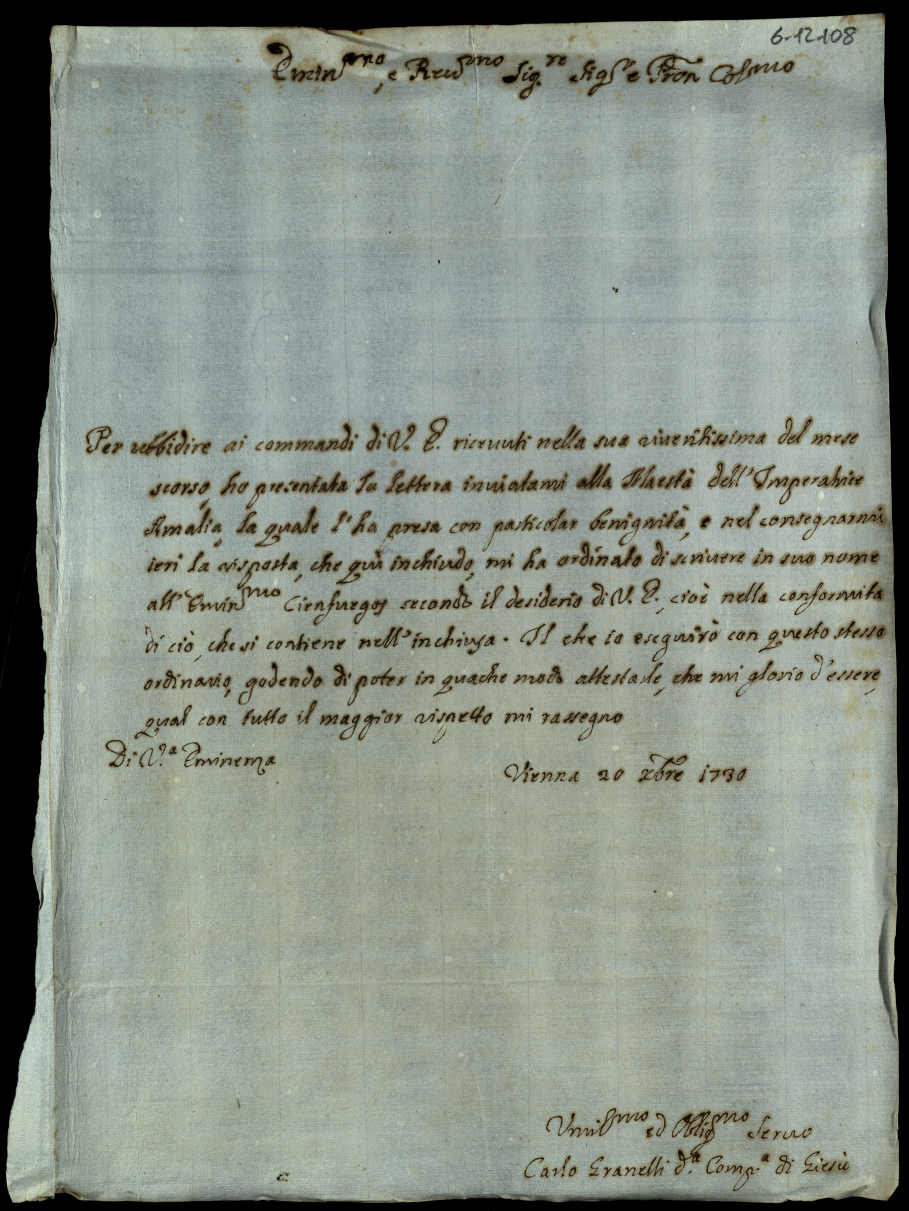 6-12-108
Emin^mo, e Rev^mo Sig.^re Sig^re e Pron Col^mo
Per ubbidire ai commandi di V. E. ricevuti nella sua riveritissima del mese
scorso, ho presentata la lettera inviatami alla Maestà dell'Imperatrice
Amalia, la quale l'ha presa con particolar benignità, e nel consegnarmi
ieri la risposta, che quì inchiudo, mi ha ordinato di scrivere in suo nome
all'Emin^mo Cienfuegos secondo il desiderio di V. E., cioè nella conformità
di ciò, che si contiene nell'inchiusa. Il che io eseguirò con questo stesso
ordinario, godendo di poter in quache modo attestarle, che mi glorio d'essere,
qual con tutto il maggior rispetto mi rassegno
Di V.^a Eminenza
Vienna 20 xbre 1730
Umil^mo ed Oblig^mo Servo
Carlo Granelli d.^a Comp.^a di Giesù